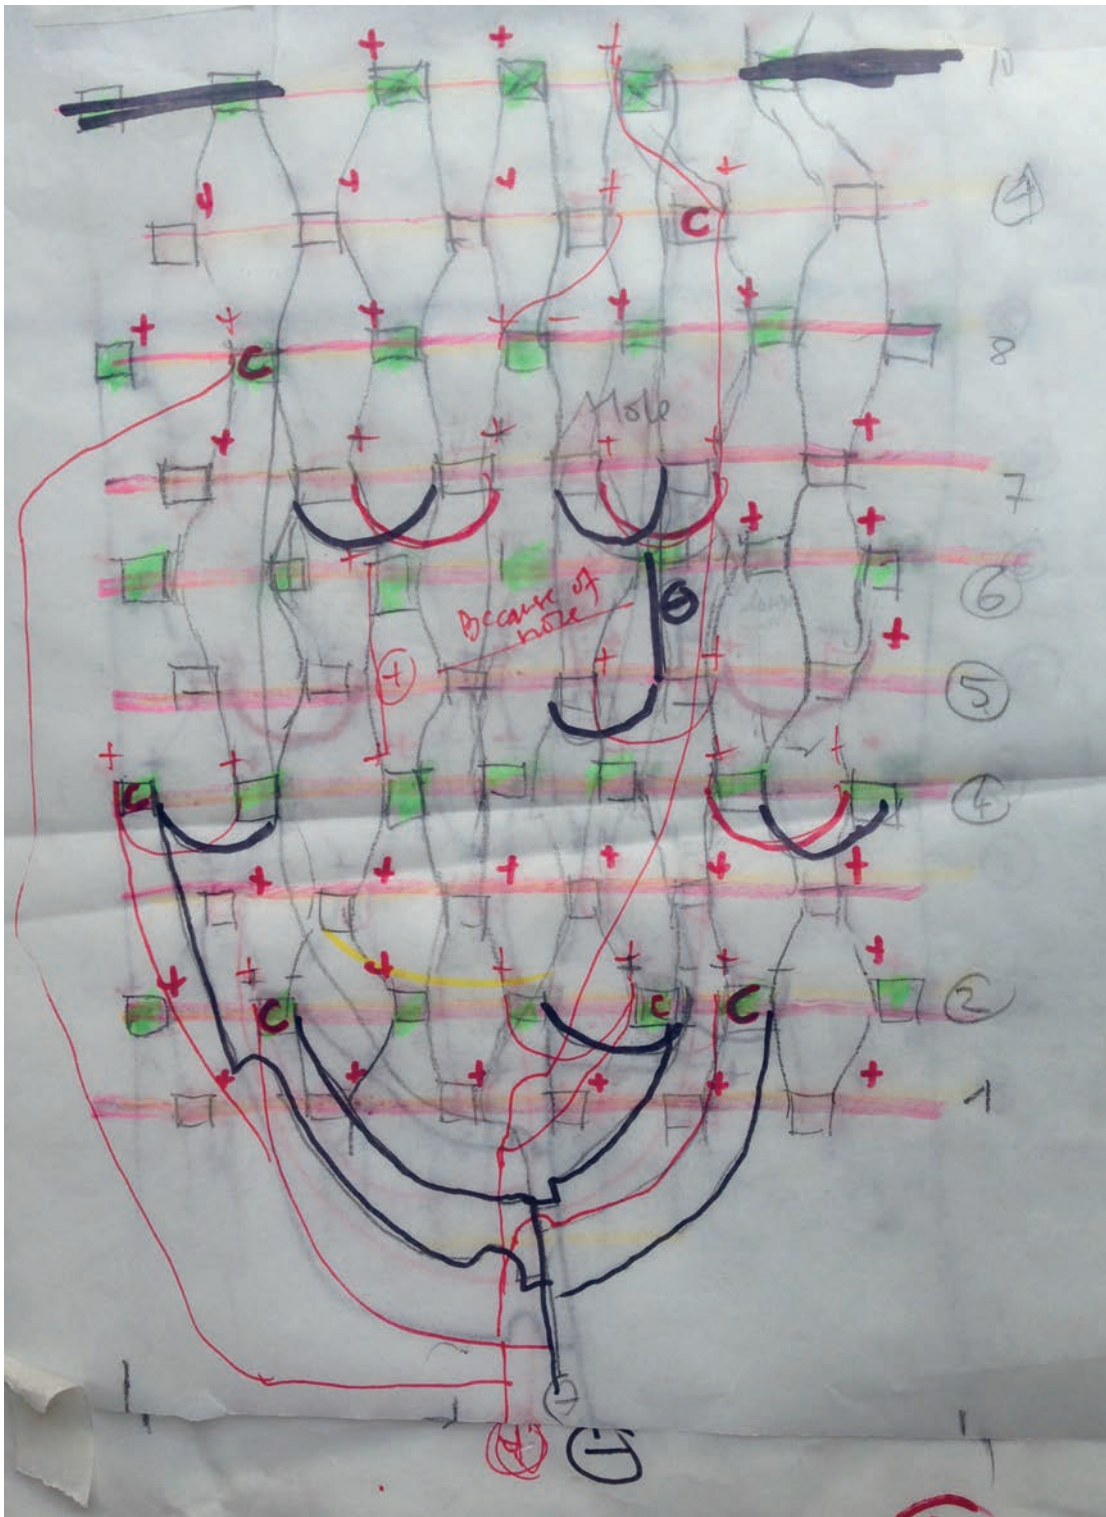 + + +
10
+ + + + +
C
+ + + + + − +
C
8
Hole
+ + + + + +
7
+ + +
6
Because of
hole
−
+
+ + +
5
+ + + + +
C
4
+ + + + + +
+ + + + + + +
C C C
2
+ + + + + +
1
−
+ −